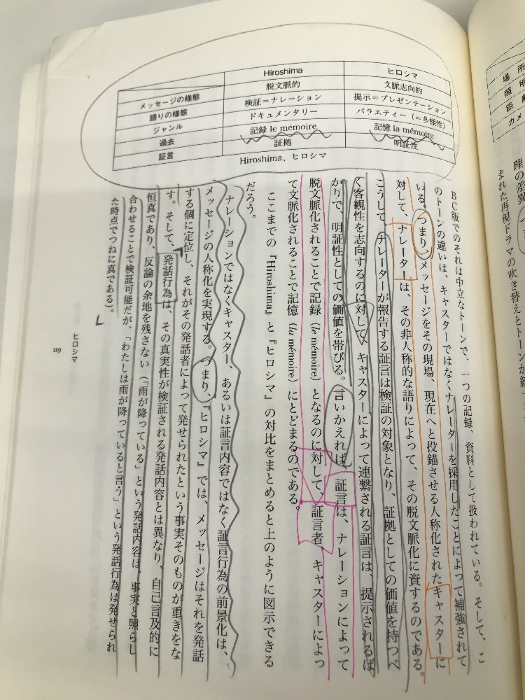 Hiroshima　ヒロシマ
メッセージの様態　脱文脈的　文脈志向的
語りの様態　検証＝ナレーション　提示＝プレゼンテーション
ジャンル　ドキュメンタリー　バラエティー（＝多様性）
過去　記録 le mémoire　記憶 la mémoire
証言　証拠　明証性
Hiroshima、ヒロシマ
BC版でのそれは中立なトーンで、一つの記録、資料として扱われている。そして、こ
のトーンの違いは、キャスターではなくナレーターを採用したことによって補強されて
いる。つまり、メッセージをその現場、現在へと投錨させる人称化されたキャスターに
対して、ナレーターは、その非人称的な語りによって、その脱文脈化に資するのである。
こうして、ナレーターが報告する証言は検証の対象となり、証拠としての価値を持つべ
く客観性を志向するのに対して、キャスターによって連繋される証言は、提示されるば
かりで、明証性としての価値を帯びる。言いかえれば、証言は、ナレーションによって
脱文脈化されることで記録（le mémoire）となるのに対して、証言者、キャスターによっ
て文脈化されることで記憶（la mémoire）にとどまるのである。
ここまでの『Hiroshima』と『ヒロシマ』の対比をまとめると上のように図示できる
だろう。
ナレーションではなくキャスター、あるいは証言内容ではなく証言行為の前景化は、
メッセージの人称化を実現する。つまり、『ヒロシマ』では、メッセージはそれを発話
する個に定位し、それがその発話者によって発せられたという事実そのものが重きをな
す。そして、発話行為は、その真実性が検証される発話内容とは異なり、自己言及的に
恒真であり、反論の余地を残さない（「雨が降っている」という発話内容は、事実と照らし
合わせることで検証可能だが、「わたしは雨が降っていると言う」という発話行為は発せられ
た時点でつねに真である）。
ヒロシマ
109